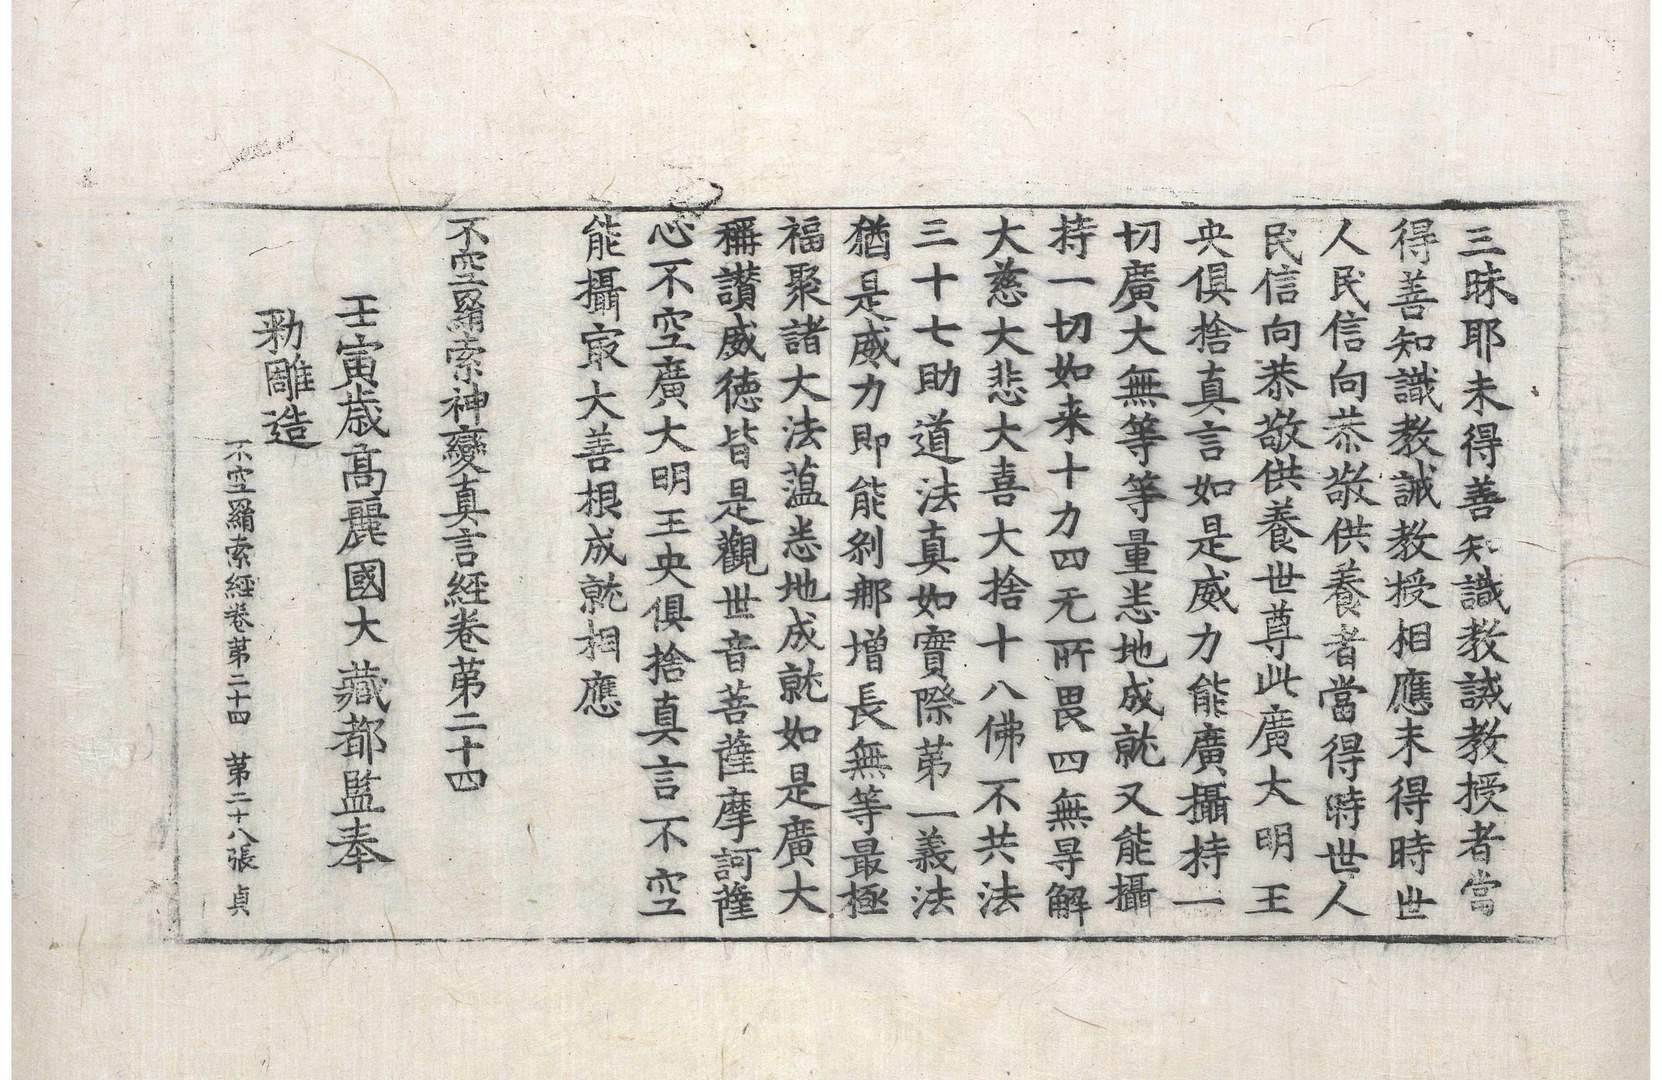 三昧耶未得善知識教誡教授者當
得善知識教誡教授相應未得時世
人民信向恭敬供養者當得時世人
民信向恭敬供養世尊此廣大明王
央俱捨真言如是威力能廣攝持一
切廣大無等等量悉地成就又能攝
持一切如来十力四无所畏四無㝵解
大慈大悲大喜大捨十八佛不共法
三十七助道法真如實際苐一義法
猶是威力即能刹那增長無等最極
福聚諸大法薀悉地成就如是廣大
稱讚威德皆是觀世音菩薩摩訶薩
心不空廣大明王央俱捨真言不空
能攝㝡大善根成就相應
不空羂索神變真言経卷苐二十四
壬寅歳髙麗國大藏都監奉
勑雕造
不空羂索経卷苐二十四 苐二十八張 貞